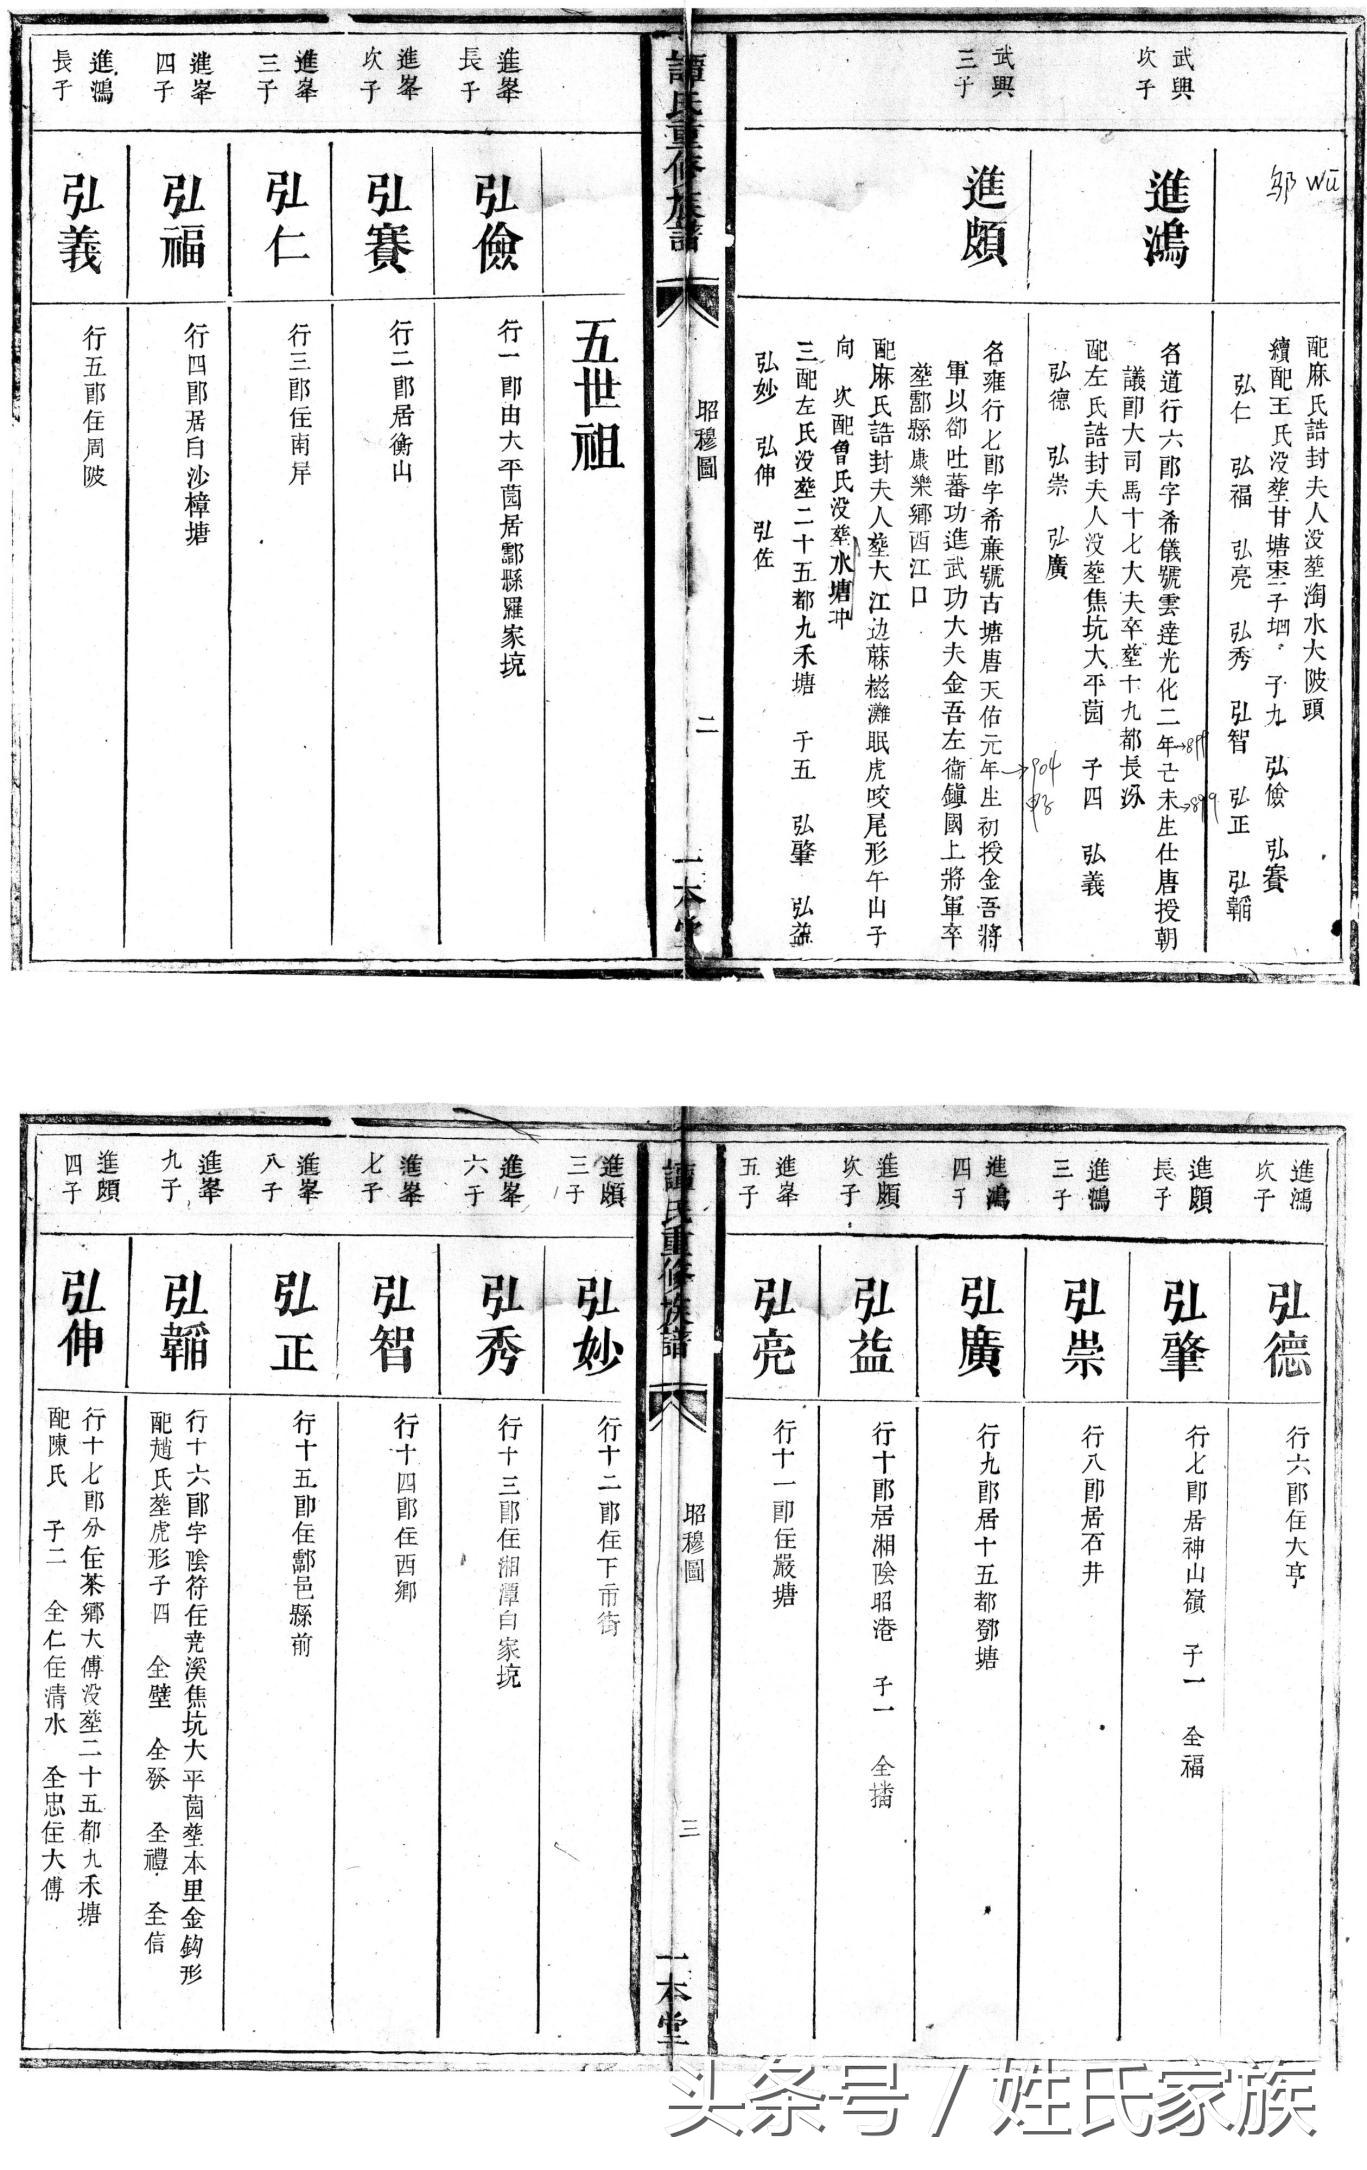 邬 wū
配麻氏誥封夫人没塟淘水大陂頭
續配王氏没塟甘塘
子九 弘儉 弘賽
弘仁 弘福 弘亮 弘秀 弘智 弘正 弘韜
武興
次子
進鴻
名道行六郎字希儀號雲達光化二年己未生仕唐授朝
→899
→899
議郎大司馬十七大夫卒塟十九都長
配左氏誥封夫人没塟焦坑大平园 子四 弘義
弘德 弘崇 弘廣
武興
三子
進頗
名雍行七郎字希亷號古塘唐天佑元年生初授金吾將
→904
甲子
軍以卻吐蕃功進武功大夫金吾左衞鎮國上將軍卒
塟酃縣康樂鄉西江口
配麻氏誥封夫人塟大江边蔴糍灘眠虎咬尾形午山子
向 次配曾氏没塟水塘冲
三配左氏没塟二十五都九禾塘 子五 弘肇 弘益
弘妙 弘伸 弘佐
譚氏重修族譜
昭穆圖
二
一本堂
五世祖
進峯
長子
弘儉
行一郎由大平园居酃縣羅家垸
進峯
次子
弘賽
行二郎居衡山
進峯
三子
弘仁
行三郎住南岸
進峯
四子
弘福
行四郎居白沙樟塘
進鴻
長子
弘義
行五郎住周陂
進鴻
次子
弘德
行六郎住大亨
進頗
長子
弘肇
行七郎居神山嶺 子一 全福
進鴻
三子
弘崇
行八郎居石井
進鴻
四子
弘廣
行九郎居十五都鄧塘
進頗
次子
弘益
行十郎居湘陰昭港 子一 全播
進峯
五子
弘亮
行十一郎住嚴塘
譚氏重修族譜
昭穆圖
三
一本堂
進頗
三子
弘妙
行十二郎住下市街
進峯
六子
弘秀
行十三郎住湘潭白家垸
進峯
七子
弘智
行十四郎住西鄉
進峯
八子
弘正
行十五郎住酃邑縣前
進峯
九子
弘韜
行十六郎字陰符住尭溪焦坑大平园塟本里金鈎形
配趙氏塟虎形子四 全璧 全發 全禮 全信
進頗
四子
弘伸
行十七郎分住茶鄉大傅没塟二十五都九禾塘
配陳氏 子二 全仁住清水 全忠住大傅
头条号 / 姓氏家族